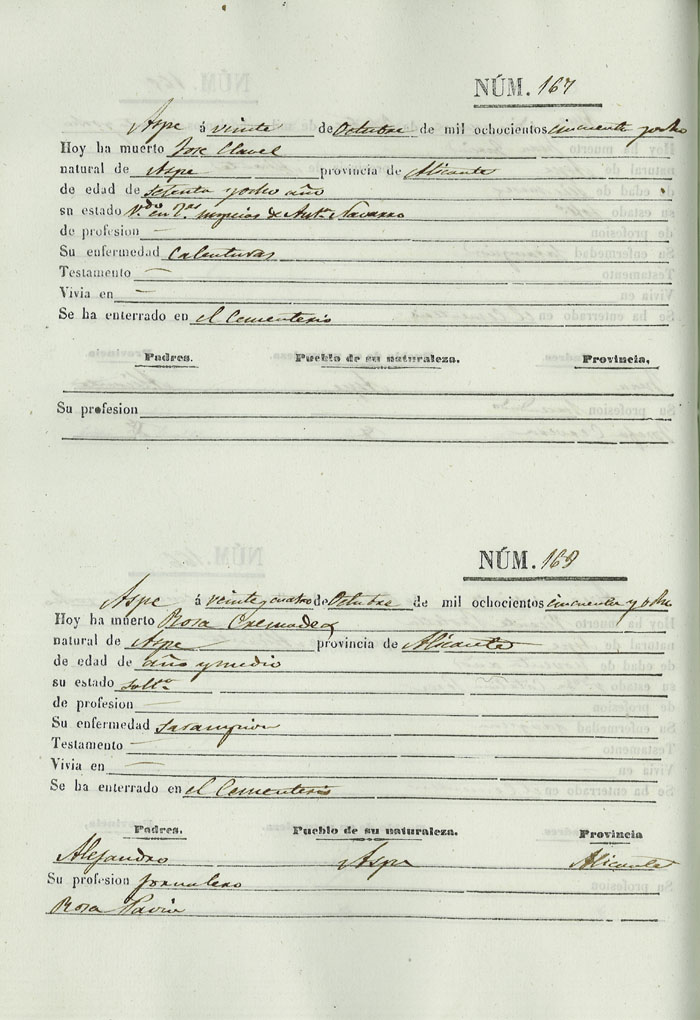 NÚM. 167
Aspe á veinte de Octubre de mil ochocientos cincuenta y ocho
Hoy ha muerto Jose Clavel
natural de Aspe provincia de Alicante
de edad de setenta y ocho año
su estado V.do en nupcias de Ant.a Navarro
de profesion —
Su enfermedad Calenturas
Testamento —
Vivia en —
Se ha enterrado en el Cementerio
Padres. Pueblo de su naturaleza. Provincia.
Su profesion
NÚM. 168
Aspe á veinte y cuatro de Octubre de mil ochocientos cincuenta y ocho
Hoy ha muerto Rosa Cremades
natural de Aspe provincia de Alicante
de edad de año y medio
su estado solt.a
de profesion —
Su enfermedad sarampion
Testamento —
Vivia en —
Se ha enterrado en el Cementerio
Padres. Pueblo de su naturaleza. Provincia
Alejandro Aspe Alicante
Su profesion jornalero
Rosa Pavia